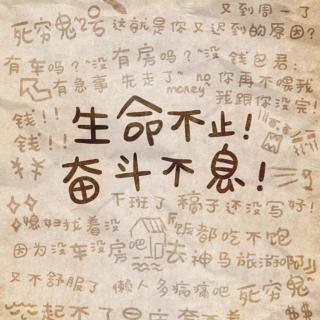 又到周一了
死穷鬼2号 这就是你又迟到的原因?
有车吗?没有房吗?没 钱包君:
有急事 先走了 no money 你再不喂我
我跟你没完!
钱!!
生命不止!
钱!!
奋斗不息!
¥¥
下班了 稿子还没写好!
媳妇拉着没
因为没车没房吧 饭都吃不饱
去神马旅游啊
又不舒服了 懒人多病痛吧 死穷鬼